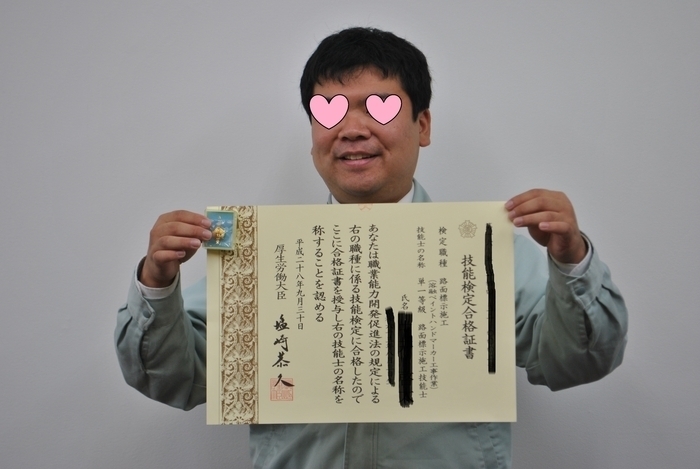 技能検定合格証書
検定職種 路面標示施工
(溶融ペイントハンドマーカー工事作業)
技能士の名称 単一等級 路面標示施工技能士
氏名
あなたは職業能力開発促進法の規定による
右の職種に係る技能検定に合格したので
ここに合格証書を授与し右の技能士の名称を
称することを認める
平成二十八年九月三十日
厚生労働大臣 塩崎恭久